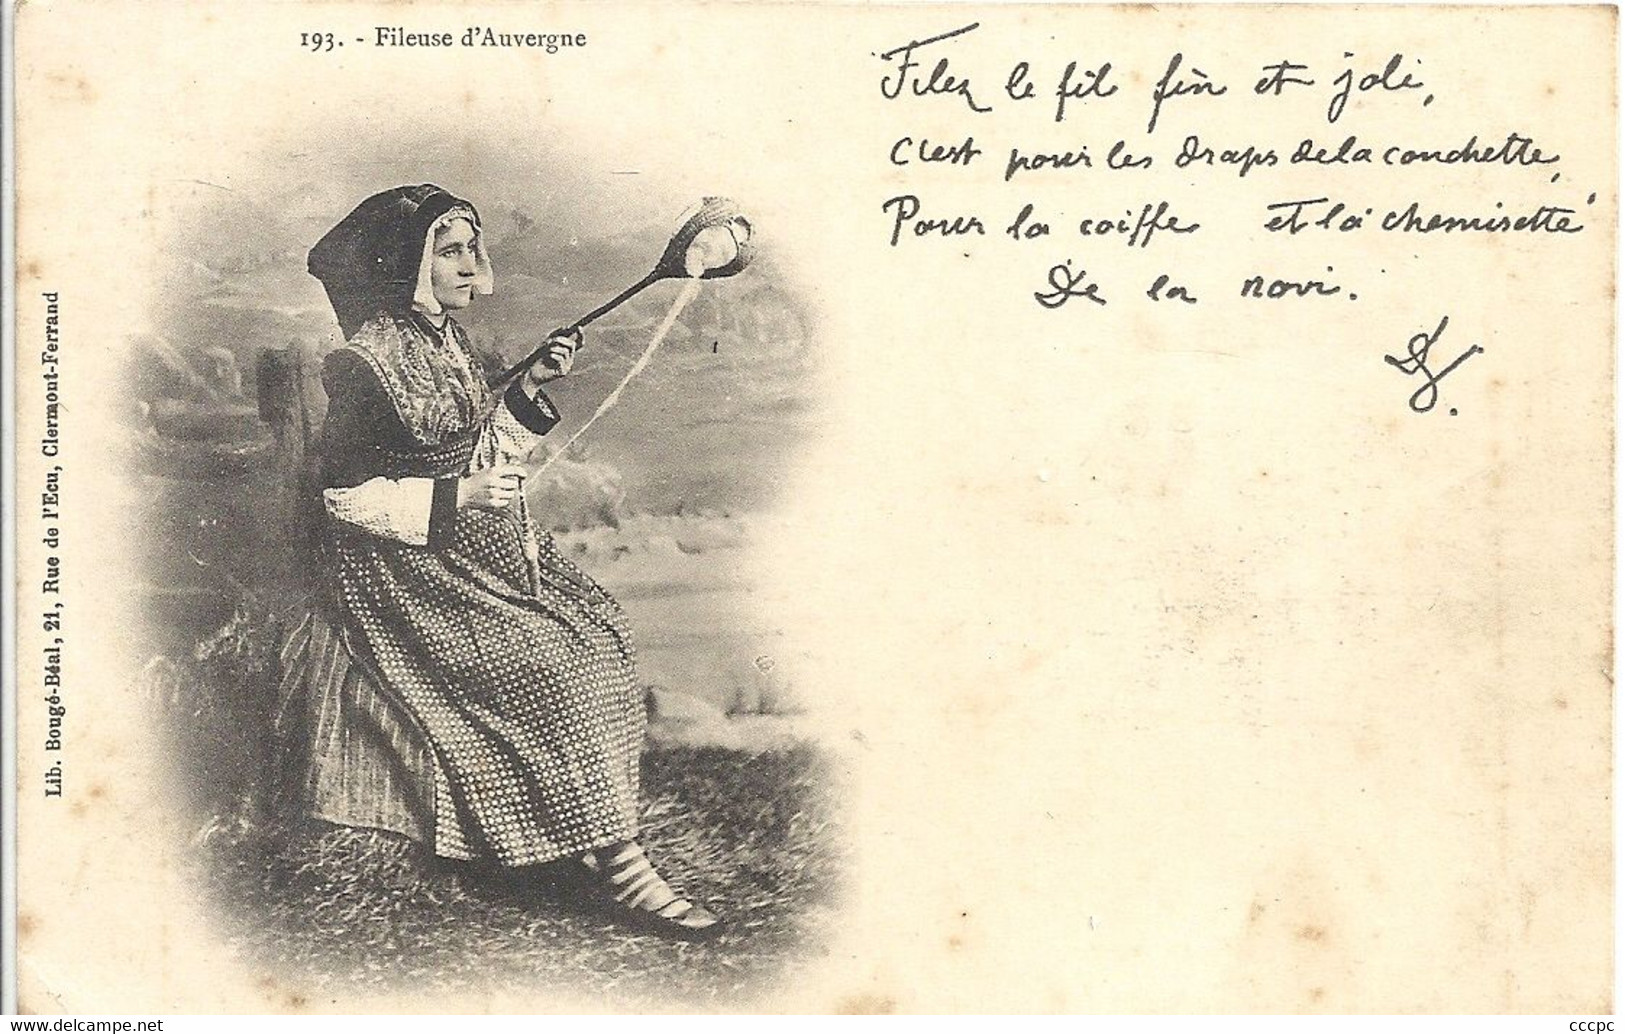 193. - Fileuse d'Auvergne
Filez le fil fin et joli,
C'est pour les draps de la couchette,
Pour la coiffe et la chemisette
De la novi.
Lib. Bougé-Béal, 21, Rue de l'Ecu, Clermont-Ferrand
www.delcampe.net
cccpc